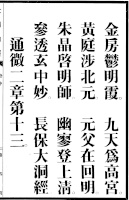 金房鬱明霞　九天為高宮
黃庭涉北元　元父在回明
朱晶啓明師　幽寥登上清
參透玄中妙　長保大洞經
通微二章第十三